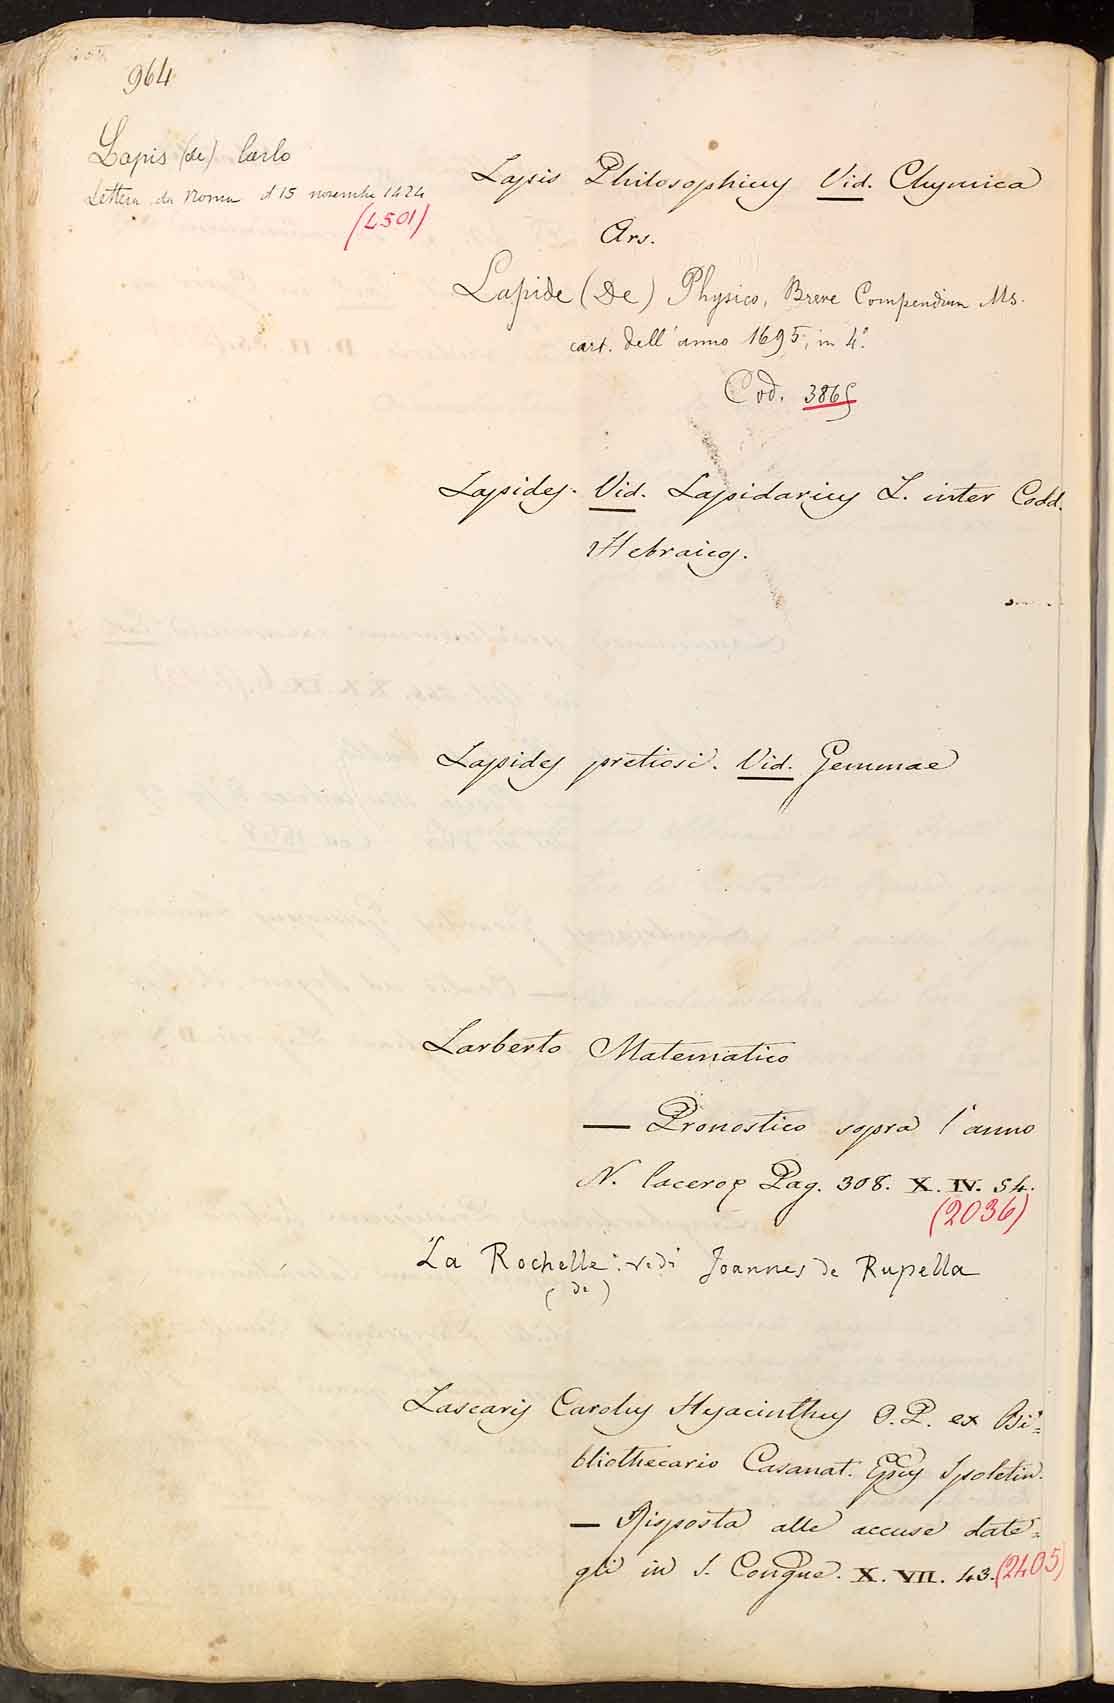 964
Lapis (de) Carlo
Lettera da Roma d 15 novembre 1424
(4501)
Lapis Philosophicus Vid. Chymica
Ars.
Lapide (De) Physico, Breve Compendium Ms.
cart. dell'anno 1695, in 4.°
Cod. 3865
Lapides. Vid. Lapidarius L. inter Codd.
Hebraicos.
Lapides pretiosi. Vid. Gemmae
Larberto Matematico
— Pronostico sopra l'anno
N. lacero Pag. 308. X. IV. 54.
(2036)
La Rochelle: vedi Joannes de Rupella
(de)
Lascaris Carolus Hyacinthus O.P. ex Bi=
bliothecario Casanat. Epus Spoletin.
— Risposta alle accuse date=
gli in S. Congne. X. VII. 43. (2405)